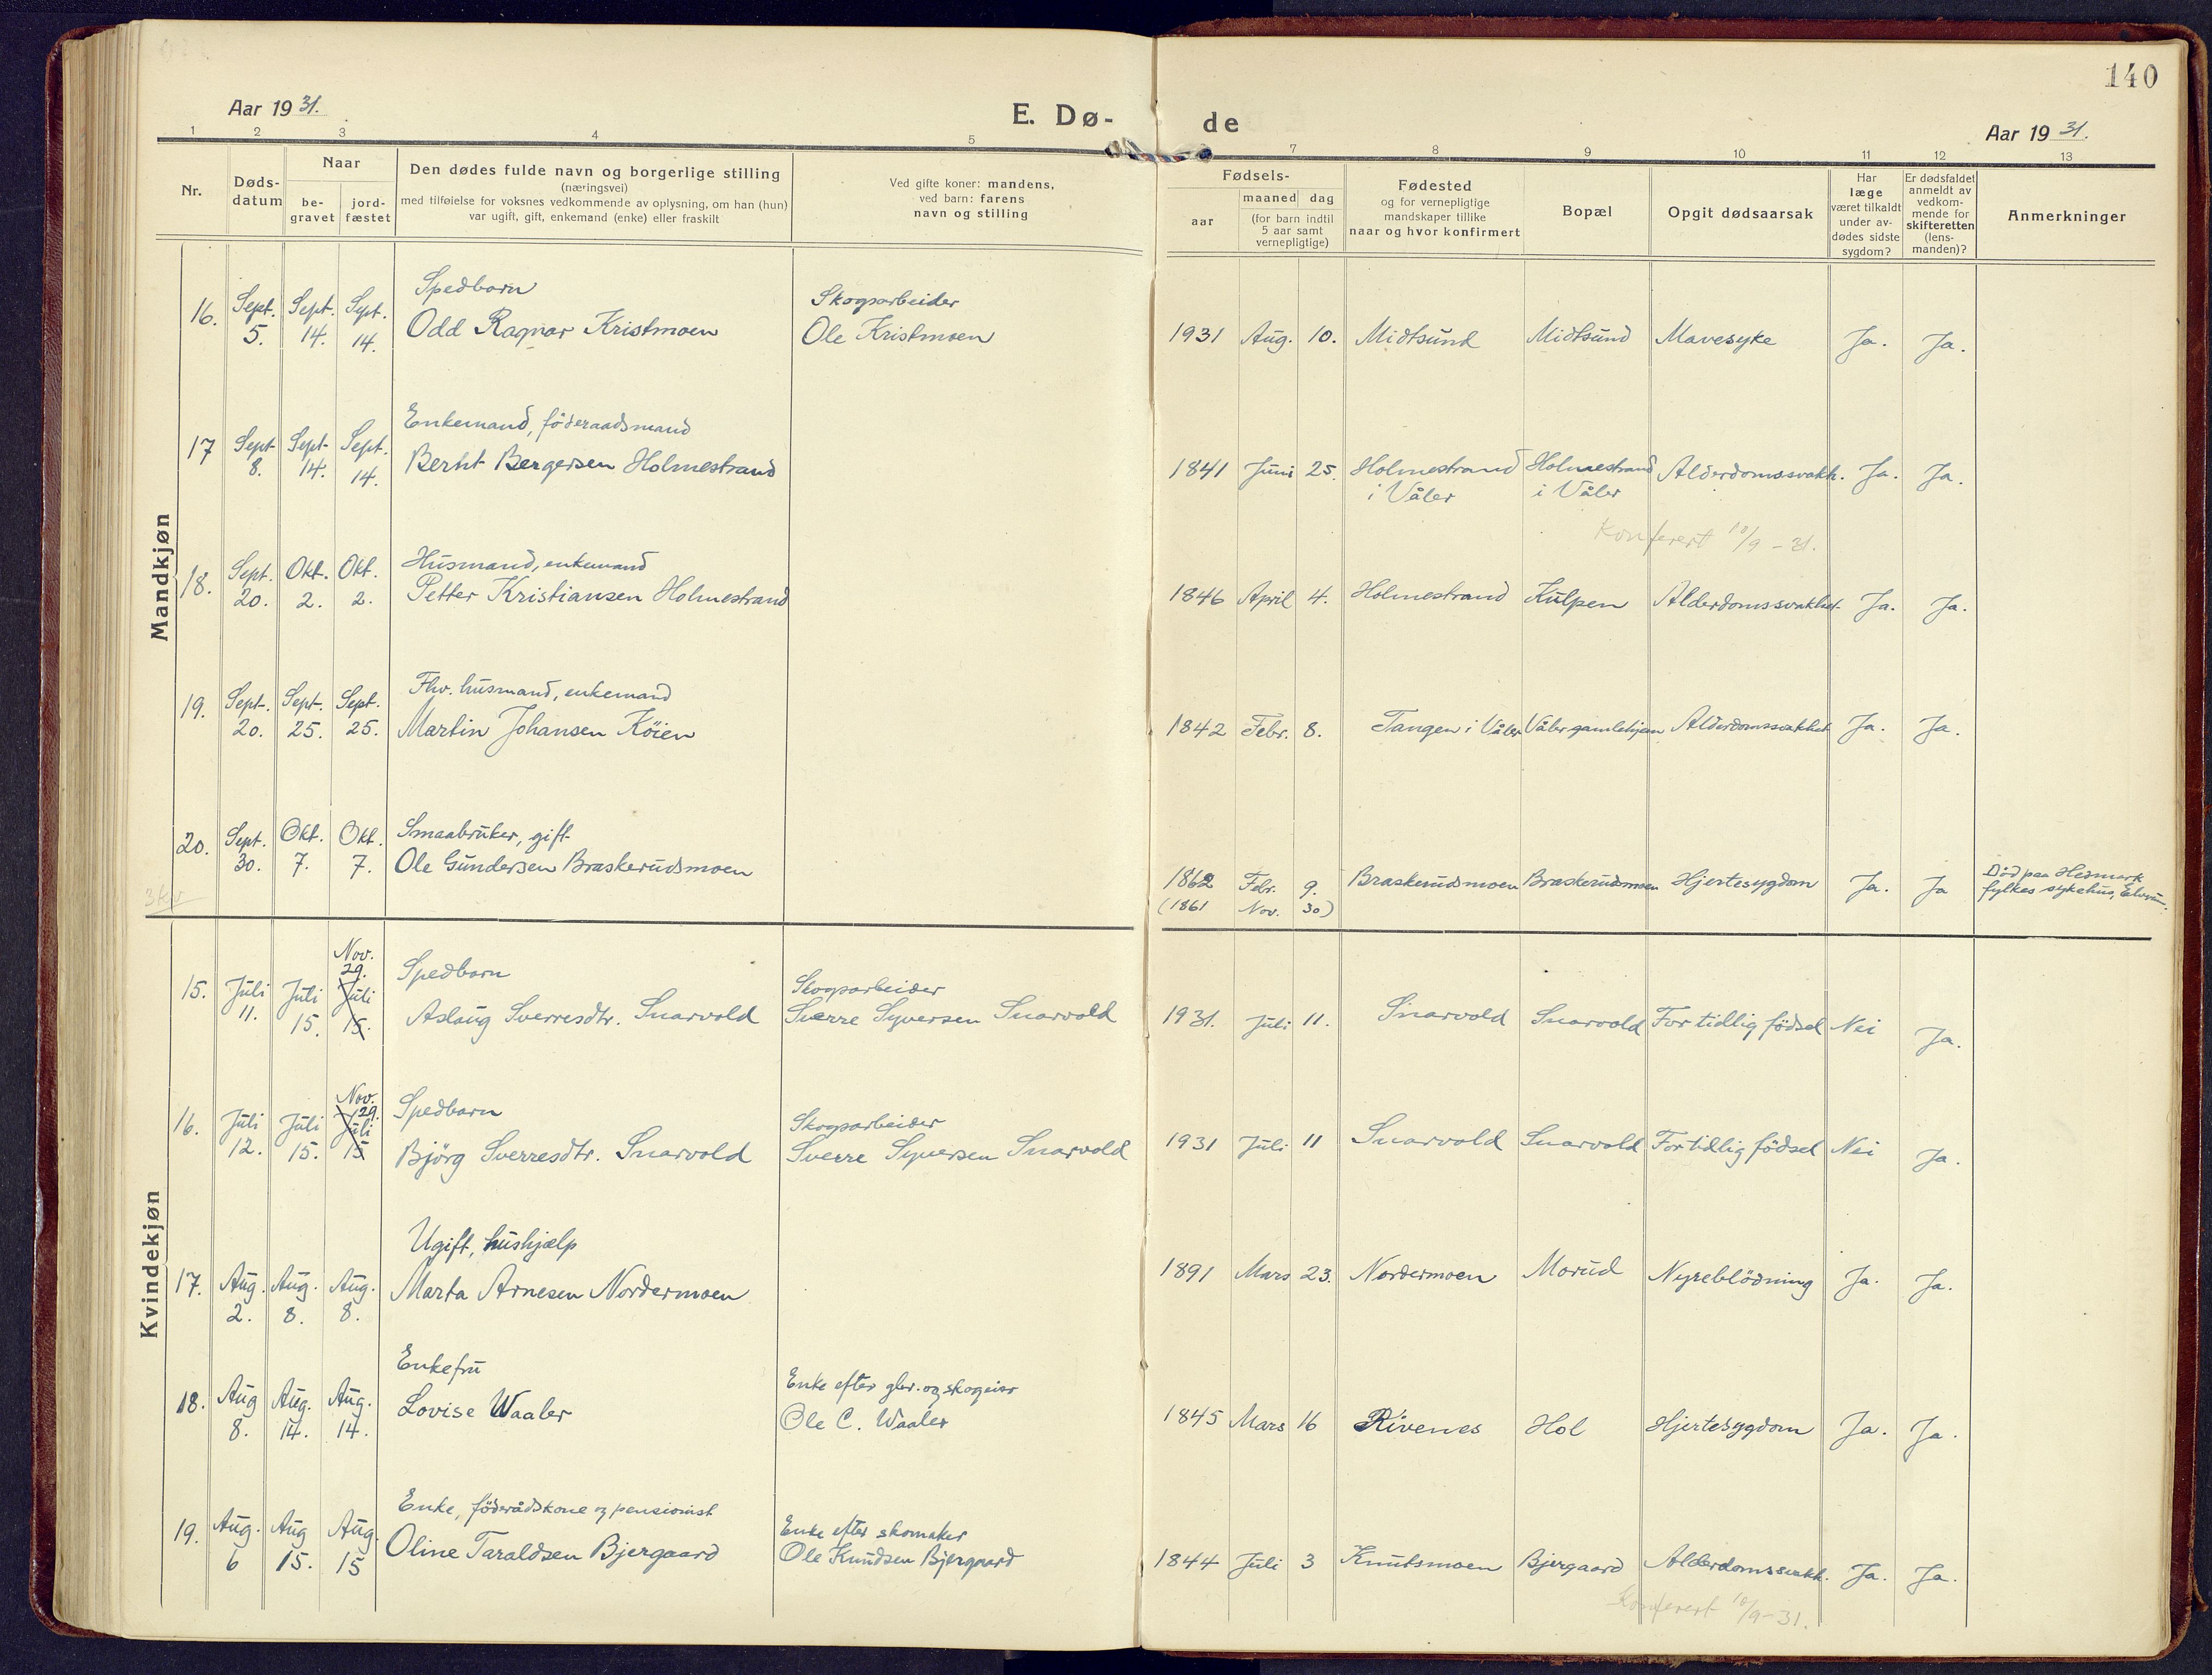 140
Aar 1931.
E. Dø-
de
Aar 1931.
1 2 3 4 5 7 8 9 10 11 12 13
Nr.
Døds-
datum
Naar
be-
gravet
jord-
fæstet
Den dødes fulde navn og borgerlige stilling
(næringsvei)
med tilføielse for voksnes vedkommende av oplysning, om han (hun)
var ugift, gift, enkemand (enke) eller fraskilt
Ved gifte koner: mandens,
ved barn: farens
navn og stilling
Fødsels-
aar
maaned dag
(for barn indtil
5 aar samt
vernepligtige)
Fødested
og for vernepligtige
mandskaper tillike
naar og hvor konfirmert
Bopæl
Opgit dødsaarsak
Har
læge
været tilkaldt
under av-
dødes sidste
sygdom?
Er dødsfaldet
anmeldt av
vedkom-
mende for
skifteretten
(lens-
manden)?
Anmerkninger
Mandkjøn
Spedbarn Skogsarbeider
16. Sept. 5. Sept. 14. Sept. 14. Odd Ragnar Kristmoen Ole Kristmoen 1931 Aug. 10. Midtsund Midtsund Mavesyke Ja. Ja.
Enkemand, föderaadsmand
17 Sept 8. Sept. 14. Sept. 14. Bernt Bergersen Holmestrand 1841 Juni 25. Holmestrand Holmestrand Alderdomssvakh. Ja. Ja.
i Våler i Våler
Konferert 10/9-31.
Husmand, enkemand
18. Sept. 20. Okt. 2. Okt. 2. Petter Kristiansen Holmestrand 1846 April 4. Holmestrand Kulpen Alderdomssvakhet Ja. Ja.
Fhv. husmand, enkemand
19. Sept. 20. Sept. 25. Sept. 25. Martin Johansen Köien 1842 Febr. 8. Tangen i Våler Våler gamlehjem Alderdomssvakhet Ja. Ja.
Smaabruker, gift
20. Sept. 30. Okt. 7. Okt. 7. Ole Gundersen Braskerudsmoen 1862 Febr. 9. Braskerudsmoen Braskerudsmoen Hjertesygdom Ja. Ja Död paa Hedmark
(1861 Nov. 30) fylkes sykehus, Elverum.
Kvindekjøn
Nov.
29.
Spedbarn Skogsarbeider
15. Juli 11. Juli 15. Juli 15. Aslaug Sverresdtr. Snarvold Sverre Syversen Snarvold 1931. Juli 11. Snarvold Snarvold For tidlig födsel Nei Ja.
Nov.
29.
Spedbarn Skogsarbeider
16. Juli 12. Juli 15. Juli 15 Björg Sverresdtr. Snarvold Sverre Syversen Snarvold 1931 Juli 11 Snarvold Snarvold For tidlig födsel Nei Ja.
Ugift, hushjælp
17. Aug. 2. Aug. 8. Aug. 8. Marta Arnesen Nordermoen 1891 Mars 23. Nordermoen Morud Nyreblödning Ja. Ja.
Enkefru Enke efter gbr. og skogeier
18. Aug 8. Aug. 14. Aug. 14. Lovise Waaler Ole C. Waaler 1845 Mars 16 Rivenes Hol Hjertesygdom Ja. Ja.
Enke, föderådskone og pensionist Enke efter skomaker
19. Aug. 6 Aug 15. Aug. 15 Oline Taraldsen Bjergaard Ole Knudsen Bjergaard 1844 Juli 3 Knutsmoen Bjergaard Alderdomssvakh. Ja. Ja.
Konferert 10/9-31.